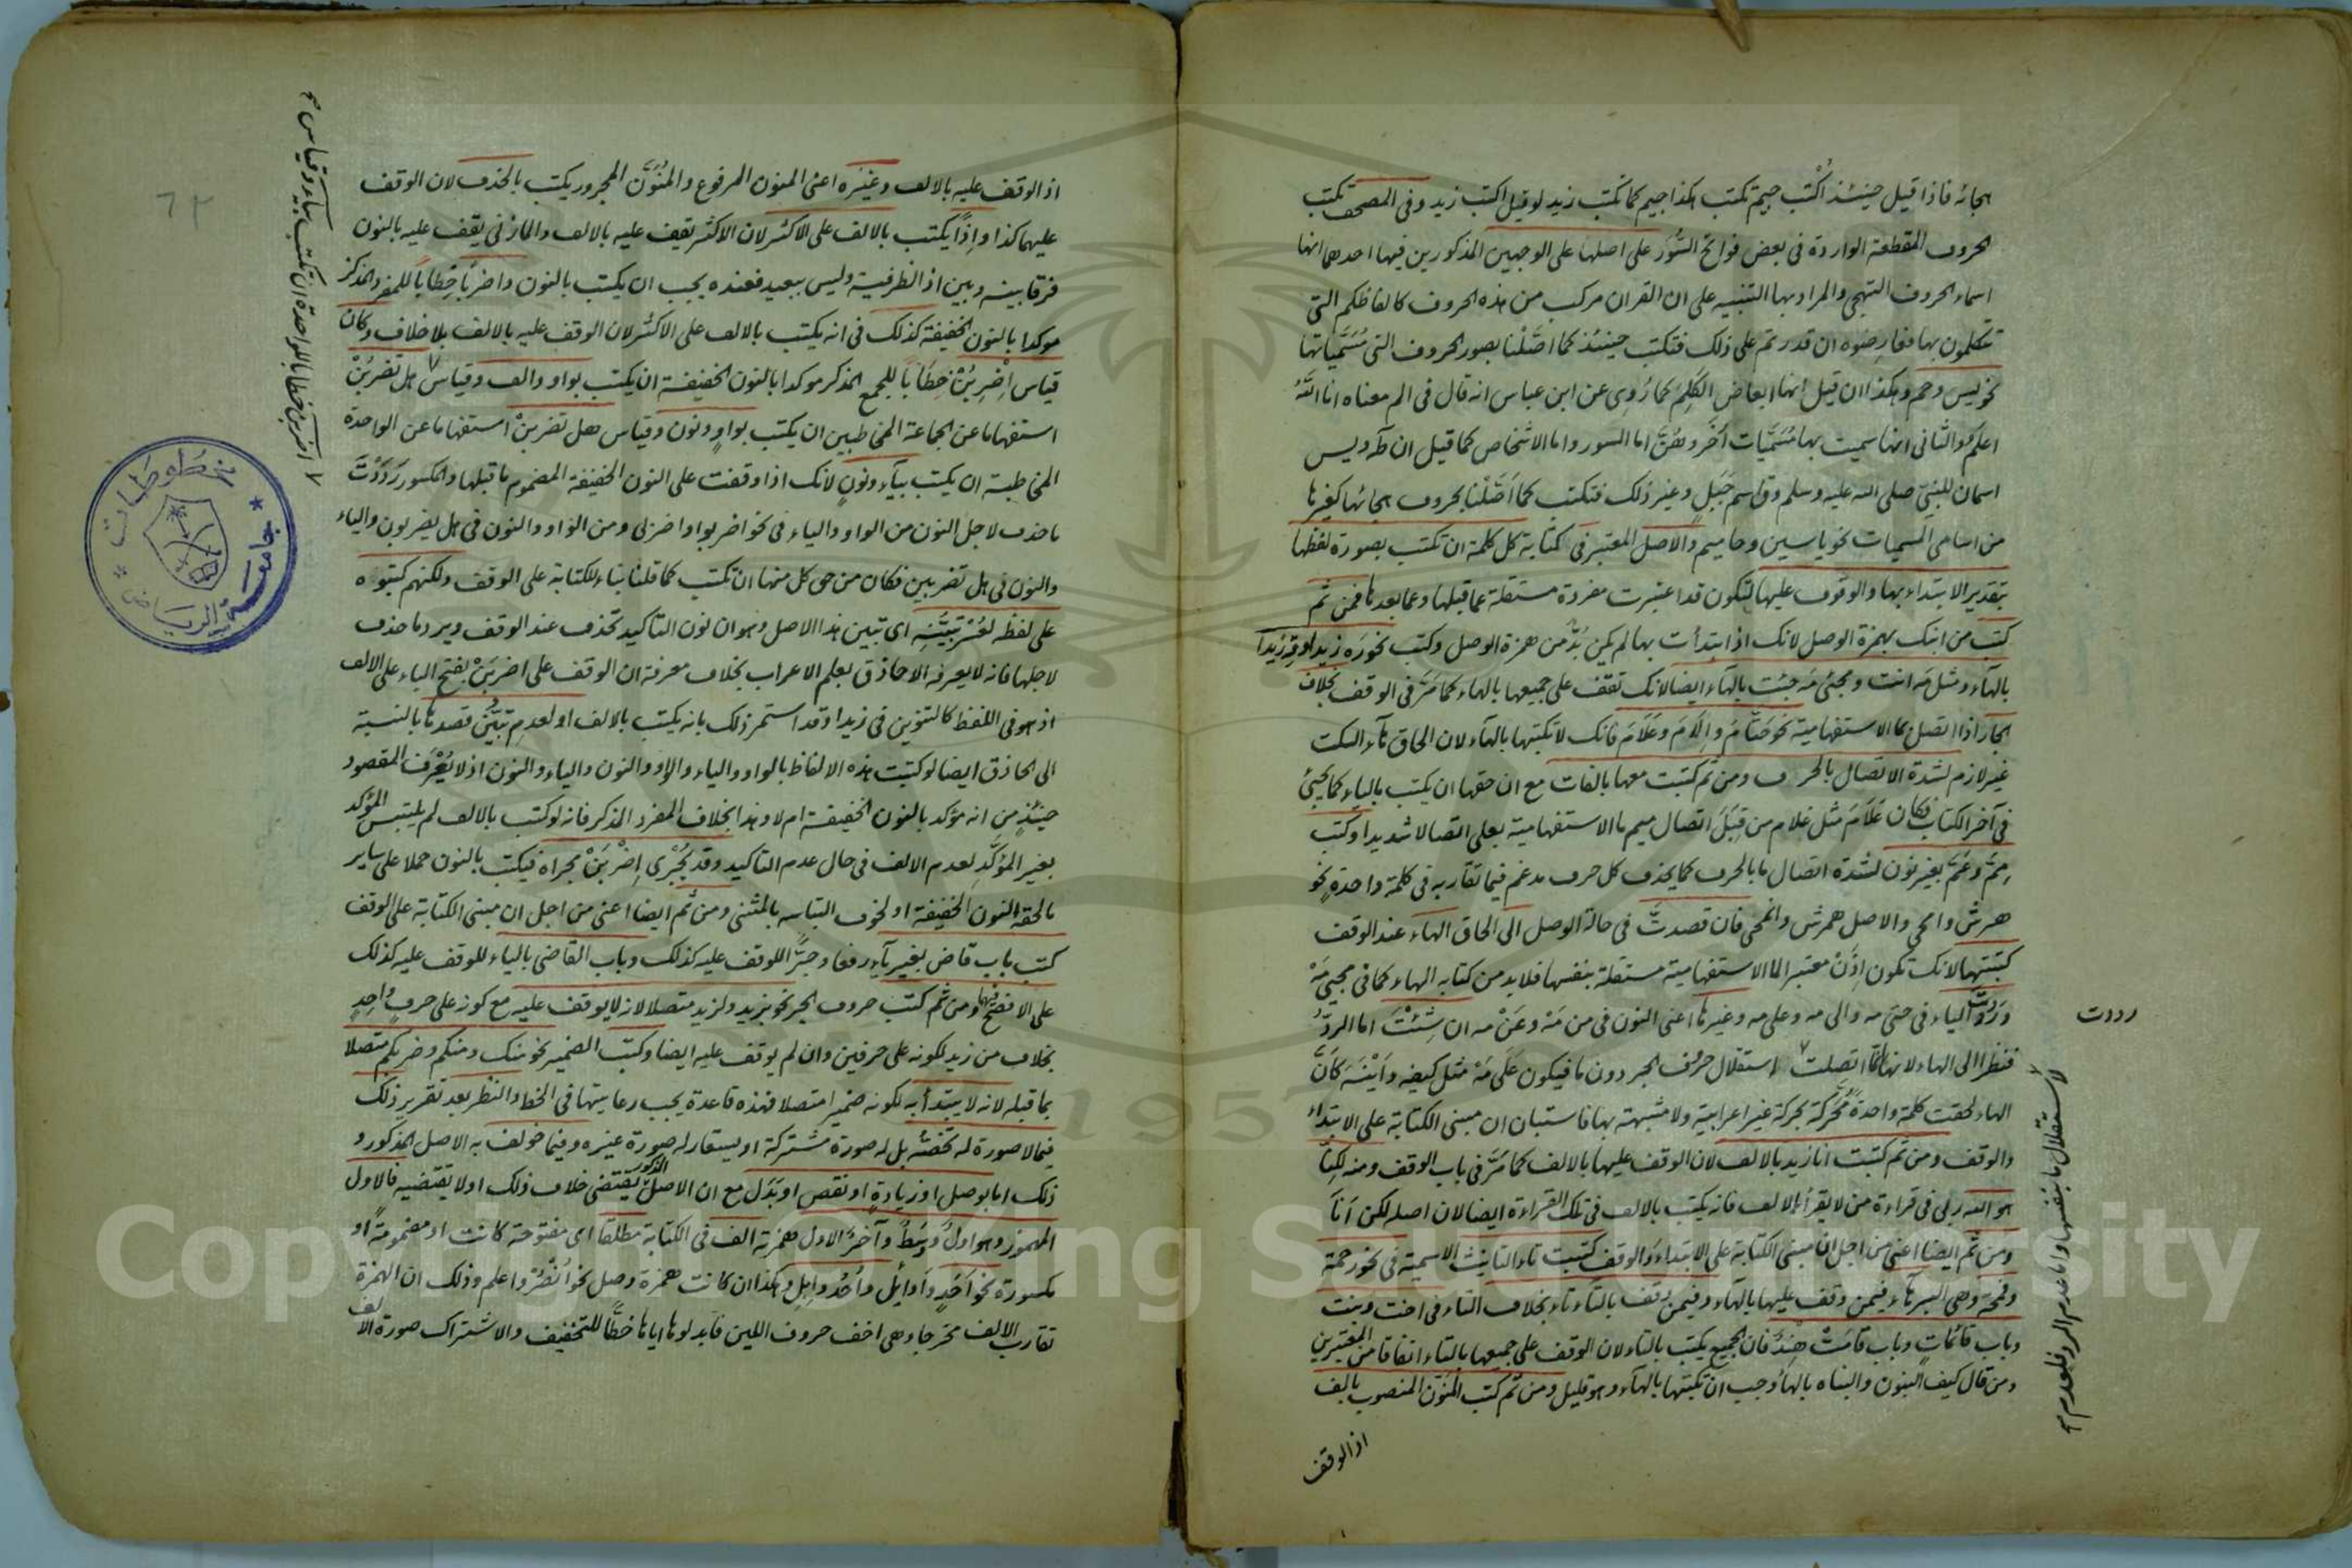 هجائه فاذا قيل حينئذ اُكْتب جيم تكتب هكذا جيم كما تكتب زيد لو قيل اكتب زيد وفى المصحف تكتب
الحروف المقطعة الواردة فى بعض فواتح السُّوَر على اصلها على الوجهين المذكورين فيها احدهما انها
اسماء الحروف التهجى والمراد بها التنبيه على ان القران مركب من هذه الحروف كالفاظكم التى
تتكلمون بها فعارضوه ان قدرتم على ذلك فتكتب حينئذ كما اصَّلْنا بصور الحروف التى مُسَمَّياتها
نحو يس وحم وهكذا ان قيل انها ابعاض الكَلِمِ كما رُوِى عن ابن عباس انه قال فى الم معناه انا اللّه
اعلم والثانى انها سميت بها مُسَمَّيات اُخَر وهُنَّ اما السور واما الاشخاص كما قيل ان طه ويس
اسمان للنبىّ صلى الله عليه وسلم وق اسم جَبَلٍ وغير ذلك فتكتب كما اَصَّلْنا بحروف هجائها كغيرها
من اسامى المسميات نحو ياسين وحاميم والاصل المعتبر فى كتابة كل كلمة ان تكتب بصورة لفظها
بتقدير الابتداء بها والوقوف عليها لتكون قد اعتبرت مفردة مستقلة عما قبلها وعما بعدها فمن ثم
كتب من ابنك بهمزة الوصل لانك اذا ابتدأت بها لم يكن بُدٌّ من همزة الوصل وكتب نحو رَه زيدا وقِه زيدا
بالهآء ومثل مَه انت ومجئ مَه جئت بالهآء ايضا لانك تقف على جميعها بالهاء كما مَرَّ فى الوقف بخلاف
الجار اذا اتصل بما الاستفهامية نحو حَتّامَ وإلَامَ وعَلَامَ فانك لا تكتبها بالهآء لان الحاق هآء السكت
غير لازم لشدة الاتصال بالحرف ومن ثم كتبت معها بالفات مع ان حقها ان يكتب بالياء كما يجئ
فى آخر الكتاب فكان عَلَامَ مثل غلام من قِبَلَ اتصال ميم ما الاستفهامية بعلى اتصالا شديدا وكتب
مِمَّ وعَمَّ بغير نون لشدة اتصال ما بالحرف كما يحذف كل حرف مدغم فيما تقاربه فى كلمة واحدةٍ نحو
همرش وامحى والاصل همرش وانمحى فان قصدتَّ فى حالة الوصل الى الحاق الهاء عند الوقف
كَتَبْتها لانك تكون اِذَنْ معتبرا لما الاستفهامية مستقلة بنفسها فلا بد من كتابه الهاء كما فى مجيئ مَهْ
ورَدَدتَّ الياء فى حتى مه والى مه وعلى مه وغيرها اعنى النون فى من مَهْ وعَنْ مه ان شِئْتَ اما الردّ
فنظرا الى الهاء لانها لمّا اتصلت لاستقلال حروف الجر دون ما فيكون عَلَى مَهْ مثل كيفه واَيْنَهْ كاَنَّ
الهاء لحقت كلمة واحدة مُحَرَّكة بحركة غير اعرابية ولا مشبهة بها فاستبان ان مبنى الكتابة على الابتداء
والوقف ومن ثم كتبت انا زيد بالالف لان الوقف عليها بالالف كما مَرَّ فى باب الوقف ومنه لكِنّا
هو الله ربى فى قراءة من لا يقرأ بالالف فانه يكتب بالالف فى تلك القراءة ايضا لان اصله لكن اَنَا
ومن ثم ايضا اعنى من اجل ان مبنى الكتابة على الابتداء والوقف كتبت تاء التانيث الاسمية فى نحو رحمة
وقمحة وهى البر هاء فيمن وقف عليها بالهآء وفيمن وقف بالتاء تاء بخلاف التاء فى اخت وبنت
وباب قائمات وباب قامَتْ هِنْدٌ فان الجميع يكتب بالتاء لان الوقف على جميعها بالتاء اتفاقا من المعتبرين
ومن قال كيف البنون والبناه بالهاء وجب ان تكتبها بالهآء وهو قليل ومن ثم كتب المُنَوَّن المنصوب بالف
اذ الوقف
رددت
لاستقلال ما بنفسها واما عدم الرد فلعدم
اذ الوقف عليه بالالف وغيَره اعنى المنون المرفوع والمُنَوَّن المجرور يكتب بالحذف لان الوقف
عليهما كذا واِذًا يكتب بالالف على الاكثر لان الاكثر يقف عليه بالالف والمازنى يقف عليه بالنون
فرقا بينه وبين اذ الظرفية وليس ببعيد فعنده يجب ان يكتب بالنون واضربًا خِطاباً للمفرد المذكر
موكدا بالنون الخفيفة كذلك فى انه يكتب بالالف على الاكثر لان الوقف عليه بالالف بلا خلاف وكان
قياس اِضْرِبُنْ خِطَابًا للجمع المذكر موكدا بالنون الخفيفة ان يكتب بواو والف وقياس هل تضربُنْ
استفهاما عن الجماعة المخاطبين ان يكتب بواوٍ ونون وقياس هل تضربنْ استفهاما عن الواحدة
المخاطبة ان يكتب بيآء ونونٍ لانك اذا وقفت على النون الخفيفة المضموم ما قبلها والمكسور رَدَدْتَّ
ما حذف لاجل النون من الواو والياء فى نحو اضربوا واضربى ومن الواو والنون فى هل يضربون والياء
والنون فى هل تضربين فكان من حق كل منها ان تكتب كما قلنا بناء للكتابة على الوقف ولكنهم كتبوه
على لفظه لعُسْرِ تَبَيُّنِهِ اى تبين هذا الاصل وهو ان نون التاكيد تحذف عند الوقف ويرد ما حذف
لاجلها فانه لا يعرفه الا حاذق بعلم الاعراب بخلاف معرفة ان الوقف على اضربَنْ بفتح الباء على الالف
اذ هو فى اللفظ كالتنوين فى زيدا وقد استمر ذلك بانه يكتب بالالف او لعدم تبَيُّن قصدها بالنسبة
الى الحاذق ايضا لو كتبت هذه الالفاظ بالواو والياء والواو والنون والياء والنون اذ لا يُعْرَف المقصود
حينئذٍ من انه مؤكد بالنون الخفيفة ام لا وهذا بخلاف المفرد المذكر فانه لو كتب بالالف لم يلتبس المؤكد
بغير المؤكّد لعدم الالف فى حال عدم التاكيد وقد يُجْرَى اِضْرِبَنْ مجراه فيكتب بالنون حملا على ساير
ما لحقه النون الخفيفة او لخوف التباسه بالمثنى ومن ثم ايضا اعنى من اجل ان مبنى الكتابة على الوقف
كتب باب قاض بغير يآءٍ رفعا وجرًّا للوقف عليه كذلك وباب القاضى بالياء للوقف عليه كذلك
على الافصح فيهما ومن ثم كتب حروف الجر نحو بزيد ولزيد متصلا لانه لا يوقف عليه مع كونه على حرف واحدٍ
بخلاف من زيد لكونه على حرفين وان لم يوقف عليه ايضا وكتب الضمير نحو منك ومنكم وضربكم متصلا
بما قبله لانه لا يبتدأ به لكونه ضميرا متصلا فهذه قاعدة يجب رعايتها فى الخط والنظر بعد تقرير ذلك
فيما لا صورة له تخصّه بل له صورة مشتركة او يستعار له صورة غيره وفيما خولف به الاصل المذكور و
ذلك اما بوصل او زيادةٍ او نقص او بَدَل مع ان الاصل المذكور يقتضى خلاف ذلك او لا يقتضيه فالاول
المهموز وهو اولٌ ووَسَطٌ وآخرٌ الاول همزته الف فى الكتابة مطلقا اى مفتوحة كانت او مضمومةً او
مكسورة نحو اَحَدٍ واَوائل واُحُدٌ واِبِل وهكذا ان كانت همزة وصل نحو اُنْصُرْ واعلم وذلك ان الهمزة
تقارب الالف مخرجا وهى اخف حروف اللين فابدلوها اياها خطًّا للتخفيف والاشتراك صورة الالف
اضربن خطابا للواحدة ان تكتب بياء وقياس
٦٢
مخطوطات
جامعة الرياض
Copyright © King Saud University
1957